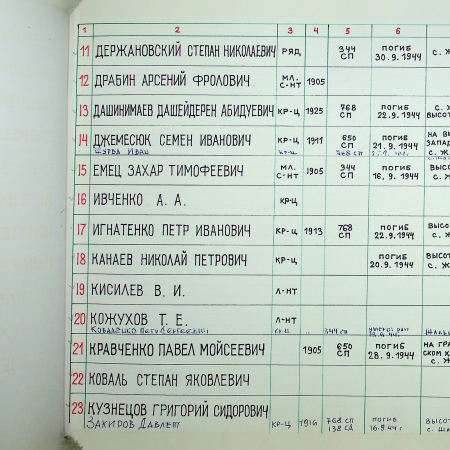 1 2 3 4 5 6
11 ДЕРЖАНОВСКИЙ СТЕПАН НИКОЛАЕВИЧ РЯД 344 СП ПОГИБ 30.9.1944 С. Ж
12 ДРАБИН АРСЕНИЙ ФРОЛОВИЧ МЛ. С-НТ 1905
13 ДАШИНИМАЕВ ДАШЕЙДЕРЕН АБИДУЕВИЧ КР-Ц 1925 768 СП ПОГИБ 22.9.1944 ВЫСОТ С. Ж
14 ДЖЕМЕСЮК СЕМЕН ИВАНОВИЧ КР-Ц 1911 650 СП ПОГИБ 21.9.1944 НА ВЫ ЗАПАД С. Ж
Иван кр-ц 768 СП
15 ЕМЕЦ ЗАХАР ТИМОФЕЕВИЧ МЛ. С-НТ 1905 344 СП ПОГИБ 16.9.1944 ВЫСО С. Ж
16 ИВЧЕНКО А. А. КР-Ц
17 ИГНАТЕНКО ПЕТР ИВАНОВИЧ КР-Ц 1913 768 СП ПОГИБ 22.9.1944 ВЫСОТ С. Ж
18 КАНАЕВ НИКОЛАЙ ПЕТРОВИЧ КР-Ц ПОГИБ 20.9.1944 ВЫСОТ С. Ж
19 КИСИЛЕВ В. И. Л-НТ
20 КОЖУХОВ Т. Е. Л-НТ
Коваленко Петр Сергеевич кр-ц 344 сп
21 КРАВЧЕНКО ПАВЕЛ МОЙСЕЕВИЧ 1905 650 СП ПОГИБ 28.9.1944 НА ГРА СКОМ К С. Ж
22 КОВАЛЬ СТЕПАН ЯКОВЛЕВИЧ
23 КУЗНЕЦОВ ГРИГОРИЙ СИДОРОВИЧ
ЗАКИРОВ ДАВЛЕТ КР-Ц 1916 768 СП 138 СД ПОГИБ 16.9.44 ВЫСОТ